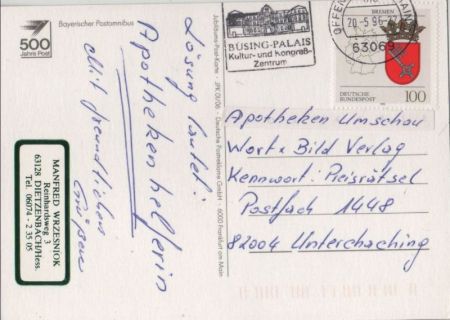 Bayerischer Postomnibus
500
Jahre Post
Lösung lautet:
Apothekenhelferin
Mit freundlichen
Grüßen
MANFRED WRZESNIOK
Reinhardsweg 3
63128 DIETZENBACH/Hess.
Tel. 06074 - 2 35 05
Jubiläums-Post-Karte · JPK 01/06 · Deutsche Postreklame GmbH · 6000 Frankfurt am Main
BÜSING-PALAIS
Kultur- und Kongreß-
Zentrum
OFFENBACH
20.-5.96
63065
BREMEN
DEUTSCHE
BUNDESPOST
100
Apotheken Umschau
Wort + Bild Verlag
Kennwort: Preisrätsel
Postfach 1448
82004 Unterhaching